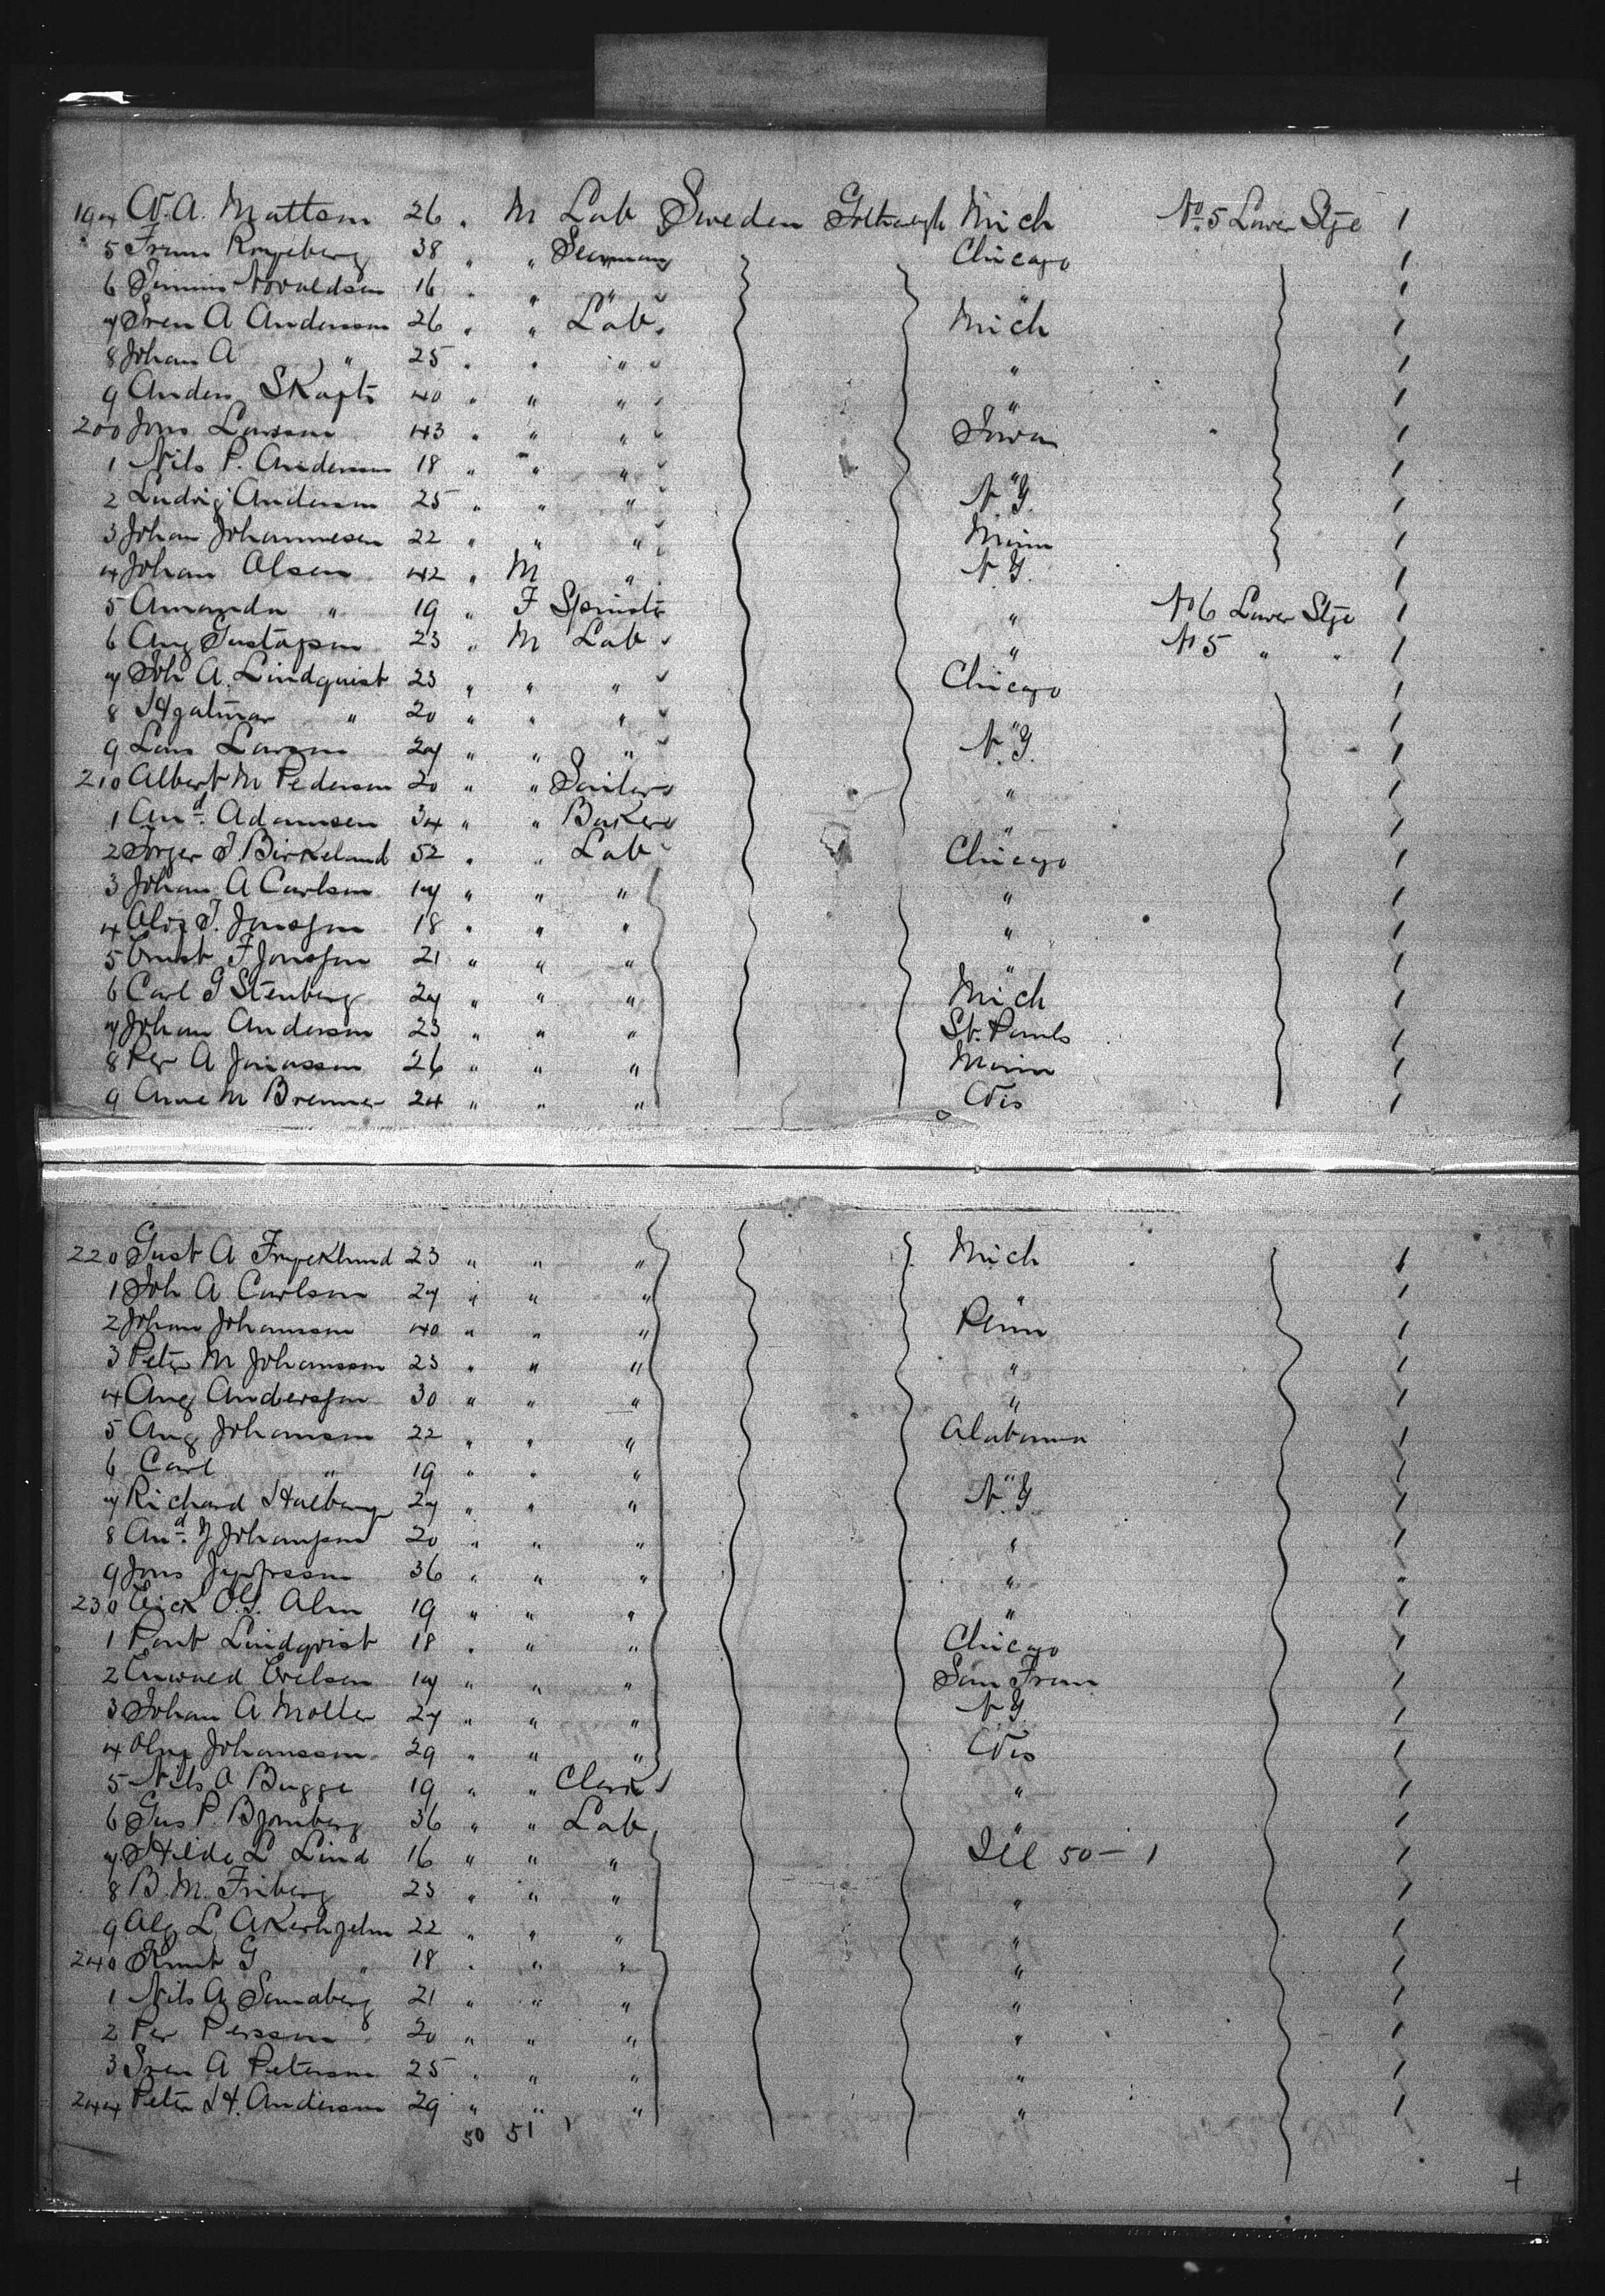 194 W. A. Mattson 26 " M Lab Sweden Gothenburgh Mich No 5 Lower Stge 1
5 38 " " Seaman Chicago 1
6 16 " " " " 1
7 Sven A Anderson 26 " " Lab Mich 1
8 Johan A " 25 " " " " 1
9 Anders 40 " " " " 1
200 Jons Larsson 43 " " " Iowa 1
1 Nils P. Anderson 18 " " " " 1
2 Ludvig Anderson 25 " " " N.Y. 1
3 Johan Johannesen 22 " " " Minn 1
4 Johan Olsen 42 " M " N.Y. 1
5 Amanda " 19 " F Spinster " No 6 Lower Stge 1
6 Aug Gustafson 23 " M Lab " No 5 " " 1
7 Joh A. Lindquist 23 " " " Chicago 1
8 Hjalmar " 20 " " " " 1
9 Lars Larson 27 " " " N.Y. 1
210 Albert M Pederson 20 " " Sailor " 1
1 And. Adamsen 34 " " Baker " 1
2 Torger T. Birkeland 52 " " Lab Chicago 1
3 Johan A Carlson 17 " " " " 1
4 18 " " " " 1
5 Ernst F Jonsson 21 " " " " 1
6 Carl G Stenberg 27 " " " Mich 1
7 Johan Anderson 23 " " " St. Pauls 1
8 Per A Jonasson 26 " " " Minn 1
9 Arne M Brenner 24 " " " Wis 1
220 Gust A Fryeklund 23 " " " Mich 1
1 Joh A Carlson 27 " " " " 1
2 Johan Johansson 40 " " " Penn 1
3 Peter M Johansson 23 " " " " 1
4 Aug Andersson 30 " " " " 1
5 Aug Johanson 22 " " " Alabama 1
6 Carl " 19 " " " " 1
7 Richard 27 " " " N.Y. 1
8 And. 20 " " " " 1
9 Jons 36 " " " " "
230 Erick O.G. Alm 19 " " " " 1
1 Pont Lindqvist 18 " " " Chicago 1
2 17 " " " San Fran 1
3 Johan A Moller 27 " " " N.Y. 1
4 Johansson 29 " " " Wis 1
5 Nils A Bugge 19 " " Clerk " 1
6 Gus P. Bjornberg 36 " " Lab " 1
7 Hilda L Lind 16 " " " Ill 50 - 1 1
8 B. M. Friberg 23 " " " " 1
9 L Akerhjelm 22 " " " " 1
240 Knut G " 18 " " " " 1
1 Nils A Sandberg 21 " " " " 1
2 Per Persson 20 " " " " 1
3 Sven A Peterson 25 " " " " 1
244 Peter H. Anderson 29 " " " " 1
50 51 1